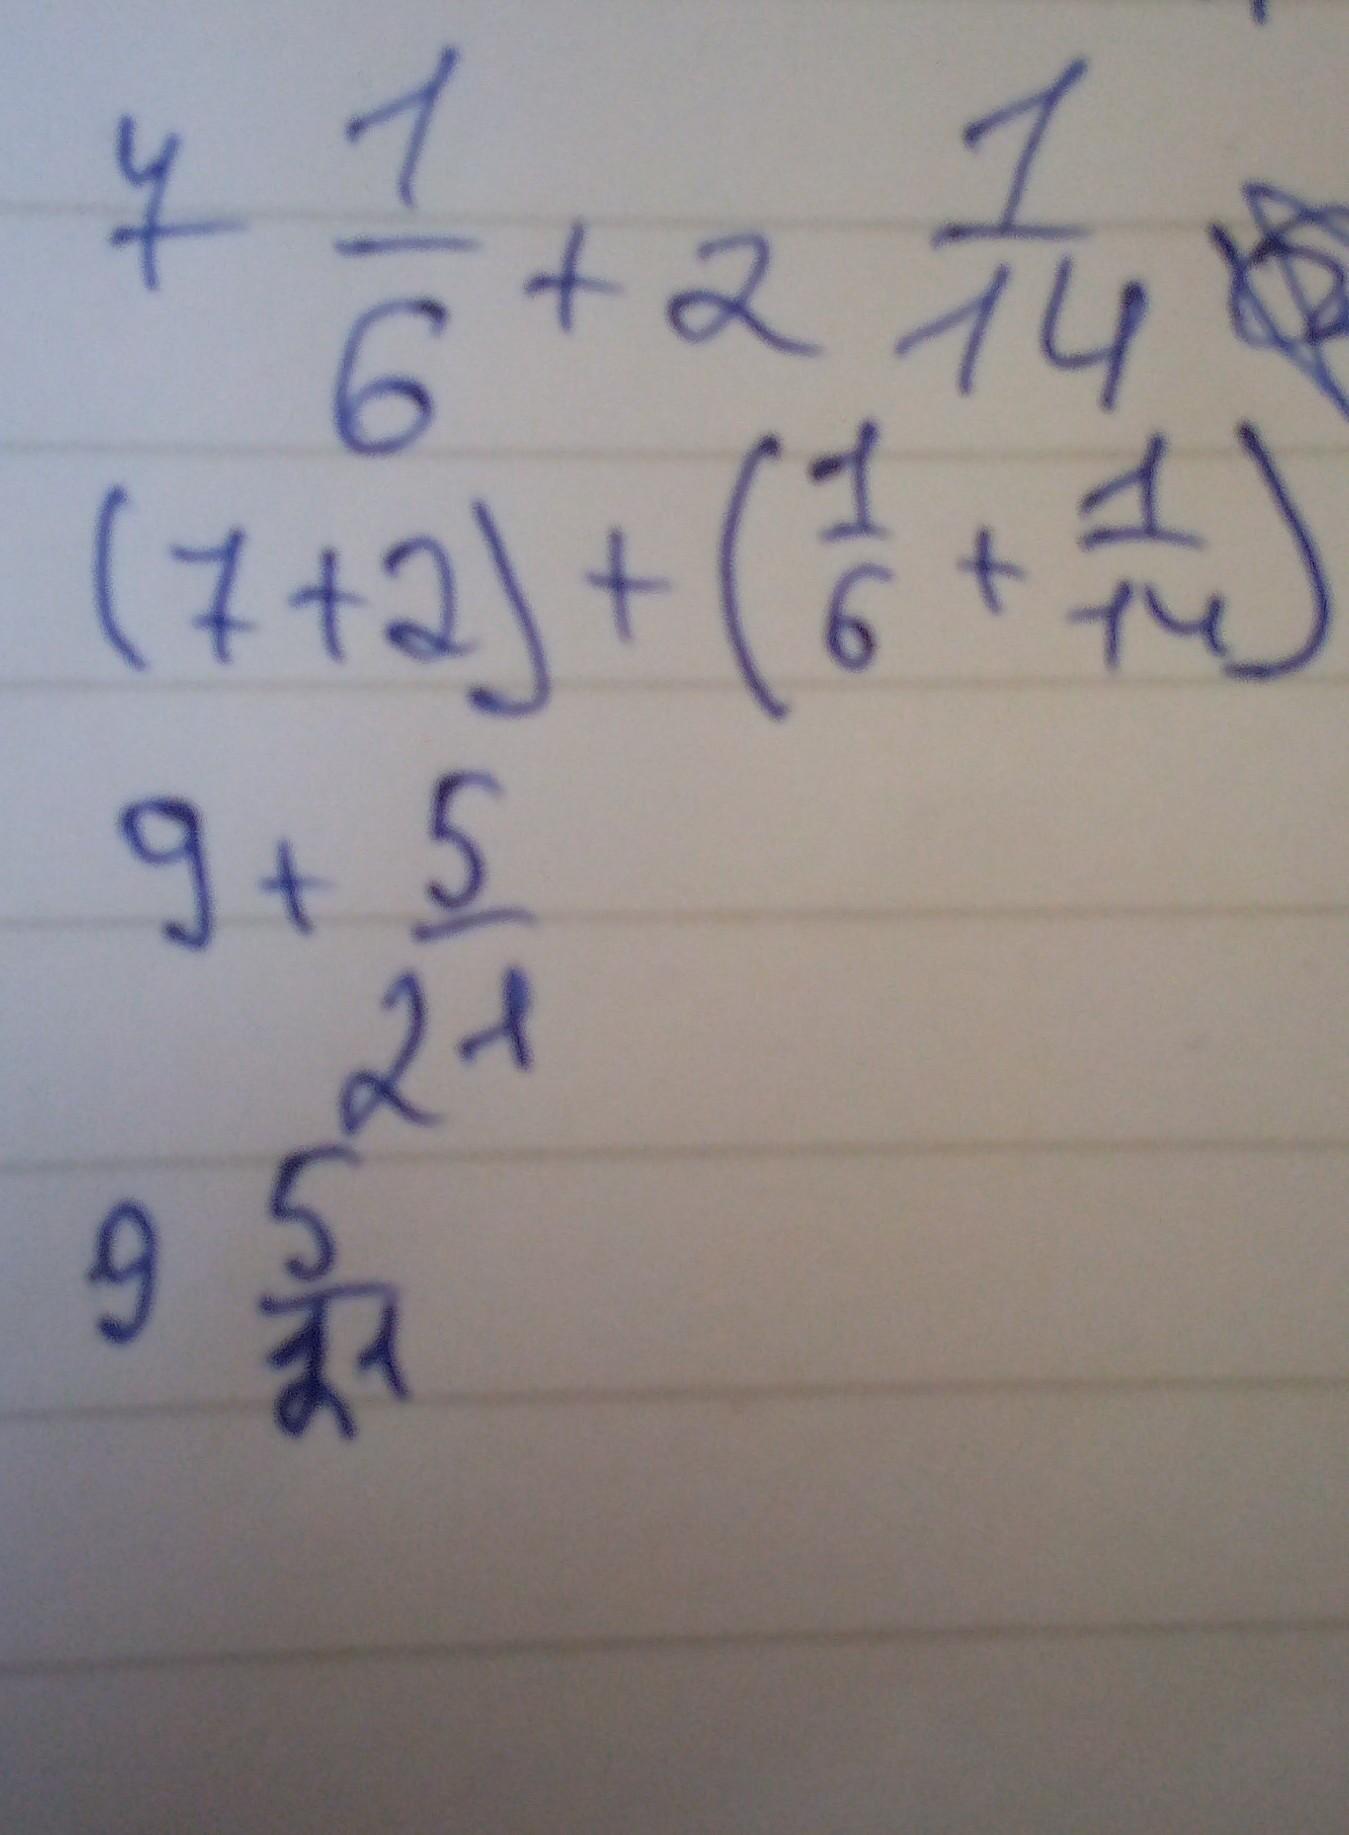 7 1/6 + 2 1/14
(7+2) + (1/6 + 1/14)
9 + 5/21
9 5/21